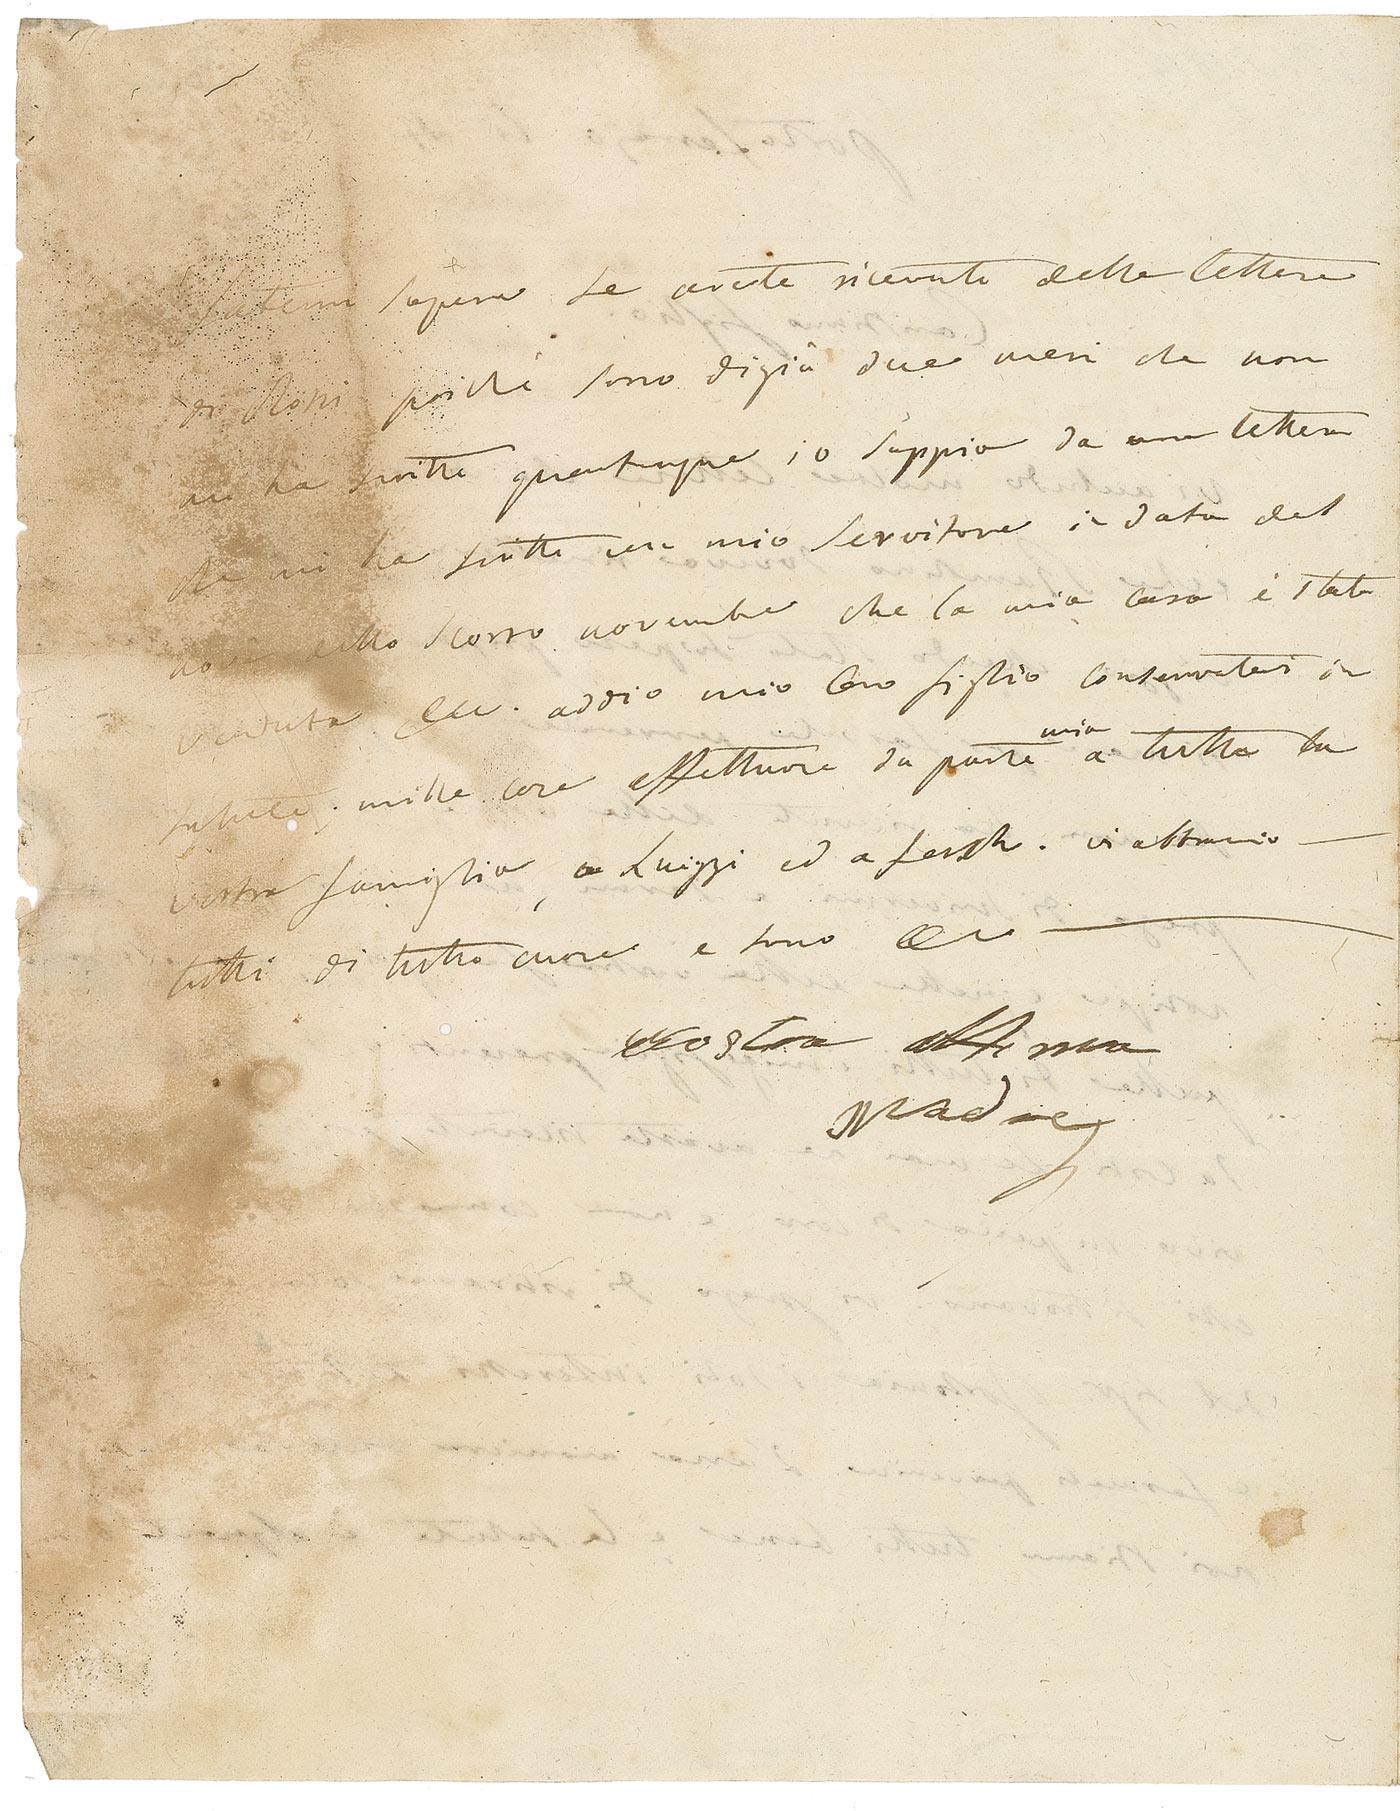 Fatemi sapere se avete ricevute delle lettere
di Rossi poiché sono digià due mesi che non
mi ha scritto quantunque io sappia da una lettera
che mi ha scritto un mio Servitore in data del
dello scorso novembre che la mia casa è stata
venduta &cc. addio mio Caro figlio conservatevi in
salute, mille cose affettuose da parte mia a tutta la
vostra famiglia, a Luiggi ed a Fesch. vi abbraccio
tutti di tutto cuore e sono &cc
vostra affma
Madre